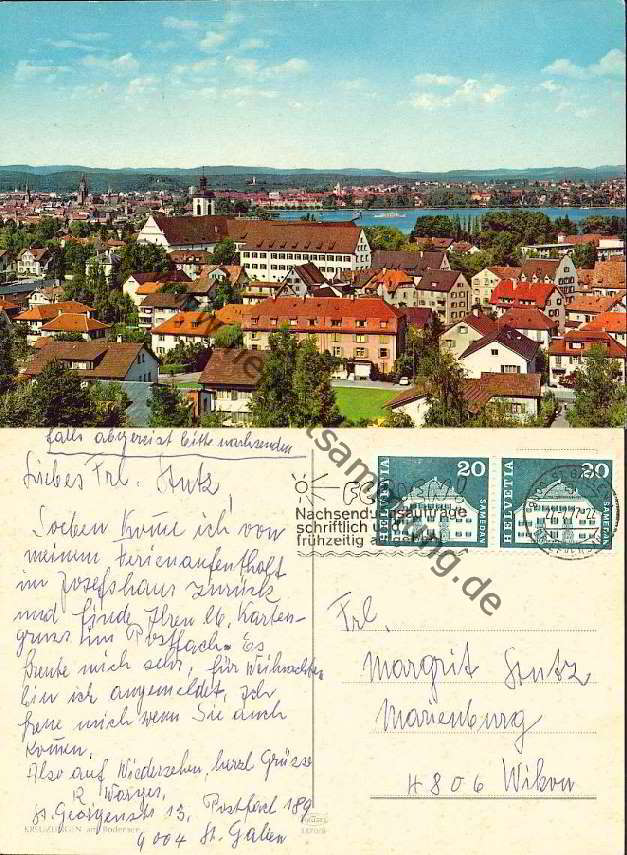 falls abgereist bitte nachsenden
Liebes Frl. Stutz,
Soeben kome ich von
meinem Ferienaufenthalt
im Josefshaus zurück
und finde Ihren lb. Karten-
gruss im Postfach. Es
freute mich sehr, für Weihnachten
bin ich angemeldet, ich
freue mich wenn Sie auch
komen.
Also auf Wiedersehen, herzl Grüsse
R
St. Georgenstr 13, Postfach 189
9004 St. Gallen
KREUZLINGEN am Bodensee
Nachsendungsaufträge
schriftlich und
frühzeitig
HELVETIA 20 SAMEDAN
HELVETIA 20 SAMEDAN
Frl.
Margrit Stutz
Marienburg
4806 Wikon